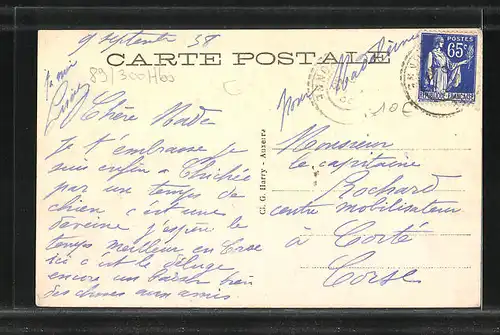 9 septembre 38
CARTE POSTALE
POSTES
65c
89/300/Hbs
pour Mad
C
10€
Chère Mado
Je t'embrasse je
suis enfin à Chichée
par un temps de
chien c'est une
déveine j'espère le
temps meilleur en Corse
ici c'est le déluge
encore un baiser bien
des choses aux amis.
Cl. G. Harry - Auxerre
Monsieur
le capitaine
Rochard
centre mobilisateur
à Corté
Corse